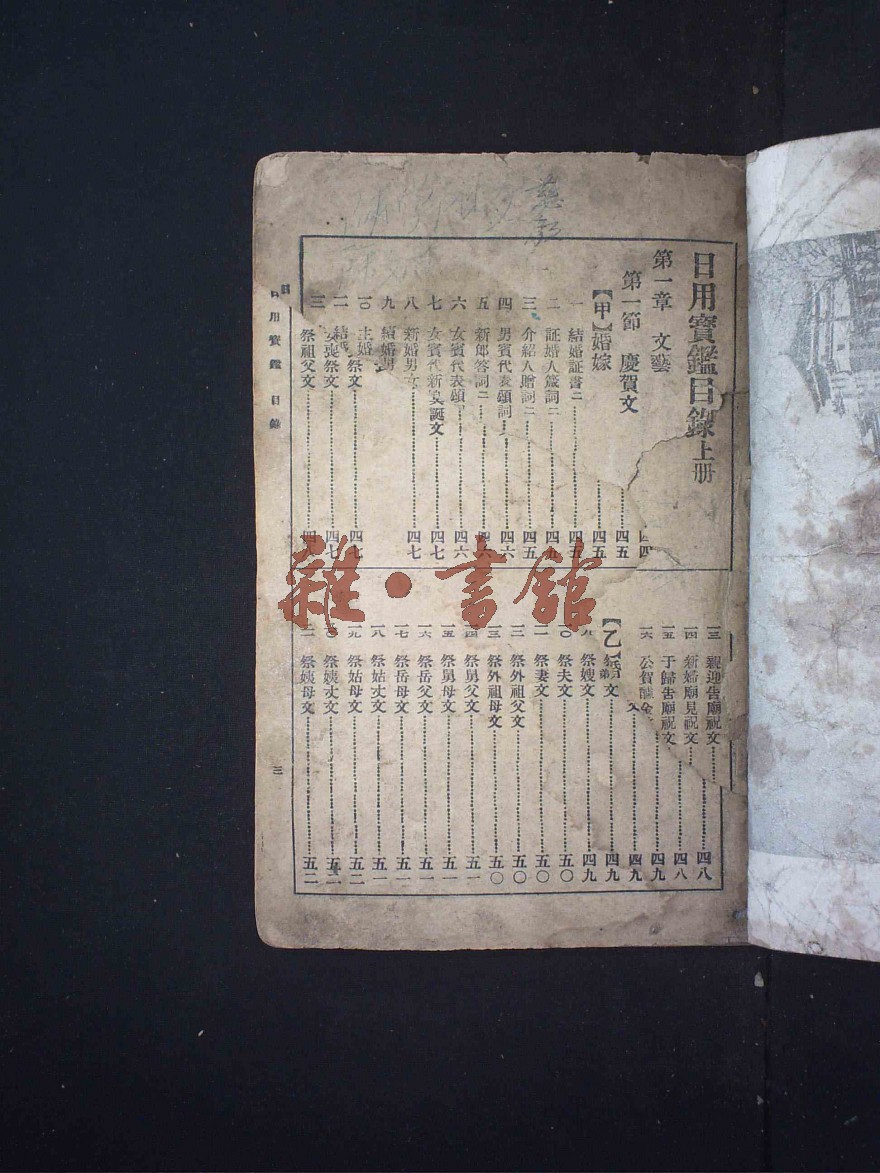 日用寶鑑目錄上册
第一章 文藝
第一節 慶賀文 四五
【甲】婚嫁 四五
一 結婚証書二 四五
二 証婚人箴詞二 四五
三 介紹人贈詞二 四五
四 男賓代表頌詞 四六
五 新郎答詞二 四六
六 女賓代表頌 四六
七 女賓代新 誕文 四七
八 新婚男女 四七
九 結婚
一〇 主婚 祭文 四七
二 祭文 四七
三 祭祖父文 四
一三 親迎告廟祝文 四八
一四 新婦廟見祝文 四八
一五 于歸告廟祝文 四九
一六 公賀醵金 四九
【乙】
文 四九
祭嫂文 四九
一〇 祭夫文 五〇
一一 祭妻文 五〇
一二 祭外祖父文 五〇
一三 祭外祖母文 五〇
一四 祭舅父文 五一
一五 祭舅母文 五一
一六 祭岳父文 五一
一七 祭岳母文 五一
一八 祭姑丈文 五一
一九 祭姑母文 五二
二〇 祭姨丈文 五二
二一 祭姨母文 五二
日用寶鑑 目錄
三
雜·書館